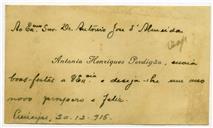 Ao Exmo. Snr. Dr. António José d'Almeida
Antonio Henriques Perdigão, envia
boas-festas a V. Excia e deseja-lhe um ano
novo prospero e feliz.
20-12-915.